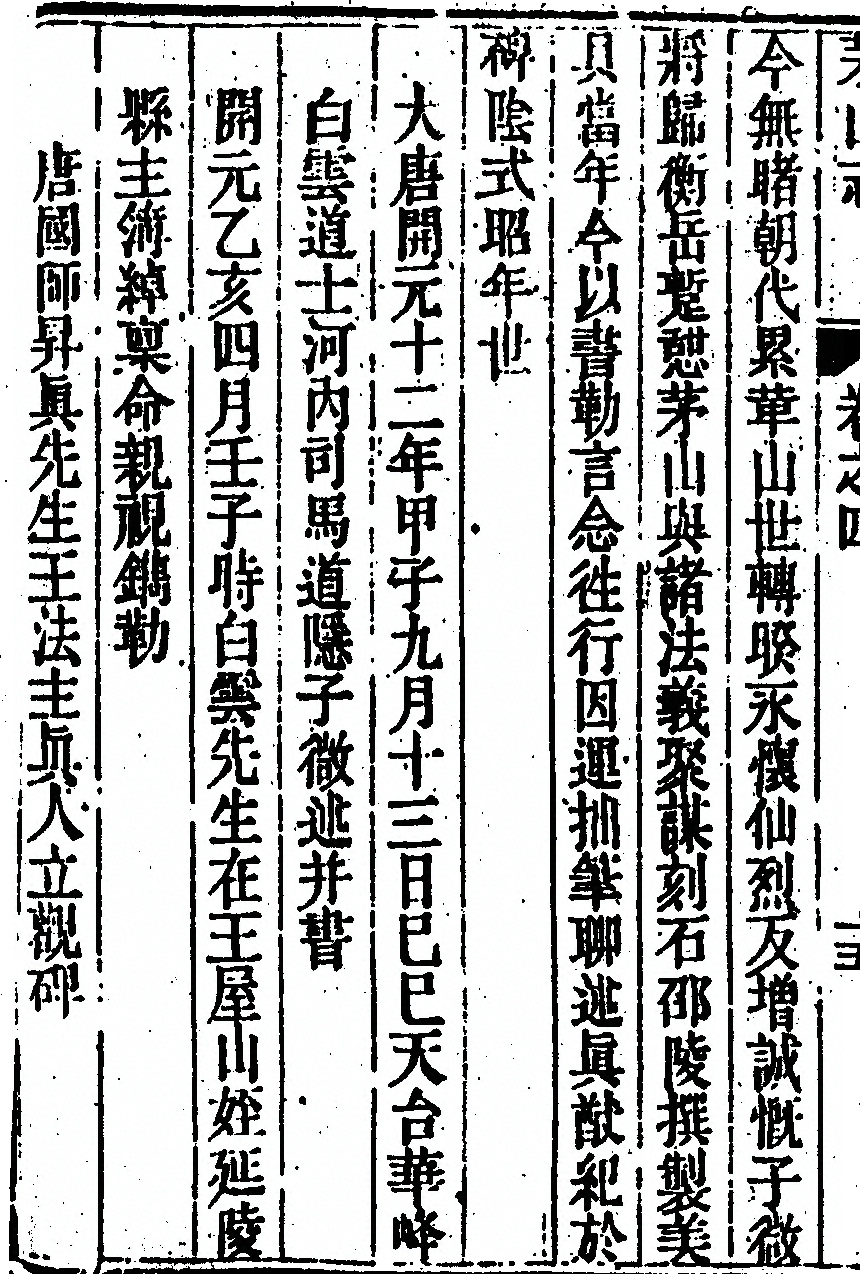 茅山志 卷之四 三
今無睹朝代累革山世轉睽永懷仙烈反增誠慨子微
將歸衡岳蹔憩茅山與諸法義聚謀刻石邵陵撰製美
具當年今以書勒言念往行因運拙筆聊述眞猷紀於
碑陰式昭年世
大唐開元十二年甲子九月十三日巳巳天台華峰
白雲道士河內司馬道隱子微述并書
開元乙亥四月壬子時白雲先生在王屋山姪延陵
縣主簿綽稟命親視鐫勒
唐國師昇眞先生王法主眞人立觀碑